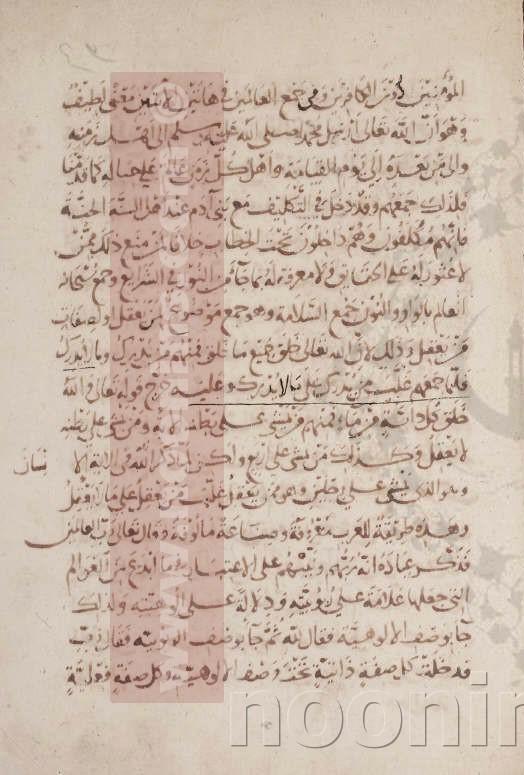 المؤمنين دون الكافرين وفي جمع العالمين في هاتين الآيتين معنى لطيف
وهو أن الله تعالى أرسل محمدا صلى الله عليه وسلم إلى أهل زمنه
والى من بعده إلى يوم القيامة وأهل كل زمن عالم على حياله كما قدمنا
فلذلك جمعهم وقد دخل في التكليف مع بني آدم عند أهل السنة الجن
فانهم مكلفون وهم داخلون تحت الخطاب خلافا لمن منع ذلك ممن
لا عثور له على الحقائق ولا معرفة له بما جاء من النبوة في الشرايع وجمع سبحانه
العالم بالواو والنون جمع السلامة وهو جمع موضوع لمن يعقل ولصفات
من يعقل وذلك لأن الله تعالى خلق جميع ما خلق فمنهم من يدرك وما لا يدرك
فلما جمعهم غلب من يدرك على ما لا يدرك وعليه خرج قوله تعالى والله
خلق كل دابة من ماء فمنهم من يمشي على بطنه لأنه ومن يمشي على بطنه
لا يعقل وكذلك من يمشي على أربع ولكن لما ذكر الله في الآية الانسان
وهو الذي يمشي على رجلين وهو ممن يعقل غلب من يعقل على ما لا يعقل
وهذه طريقة للعرب معروفة وصناعة مألوفة وقال تعالى رب العالمين
فذكر عباده أنه ربهم ونبههم على الاعتبار في ما أبدع من العوالم
التي جعلها علامة على ربوبيته ودلالة على ألوهيته ولذلك
جاء بوصف الالوهية فقال لله ثم جاء بوصف الربوبية فقال رب
فدخلت كل صفة ذاتية تحت وصف الالوهية وكل صفة فعلية
noonin